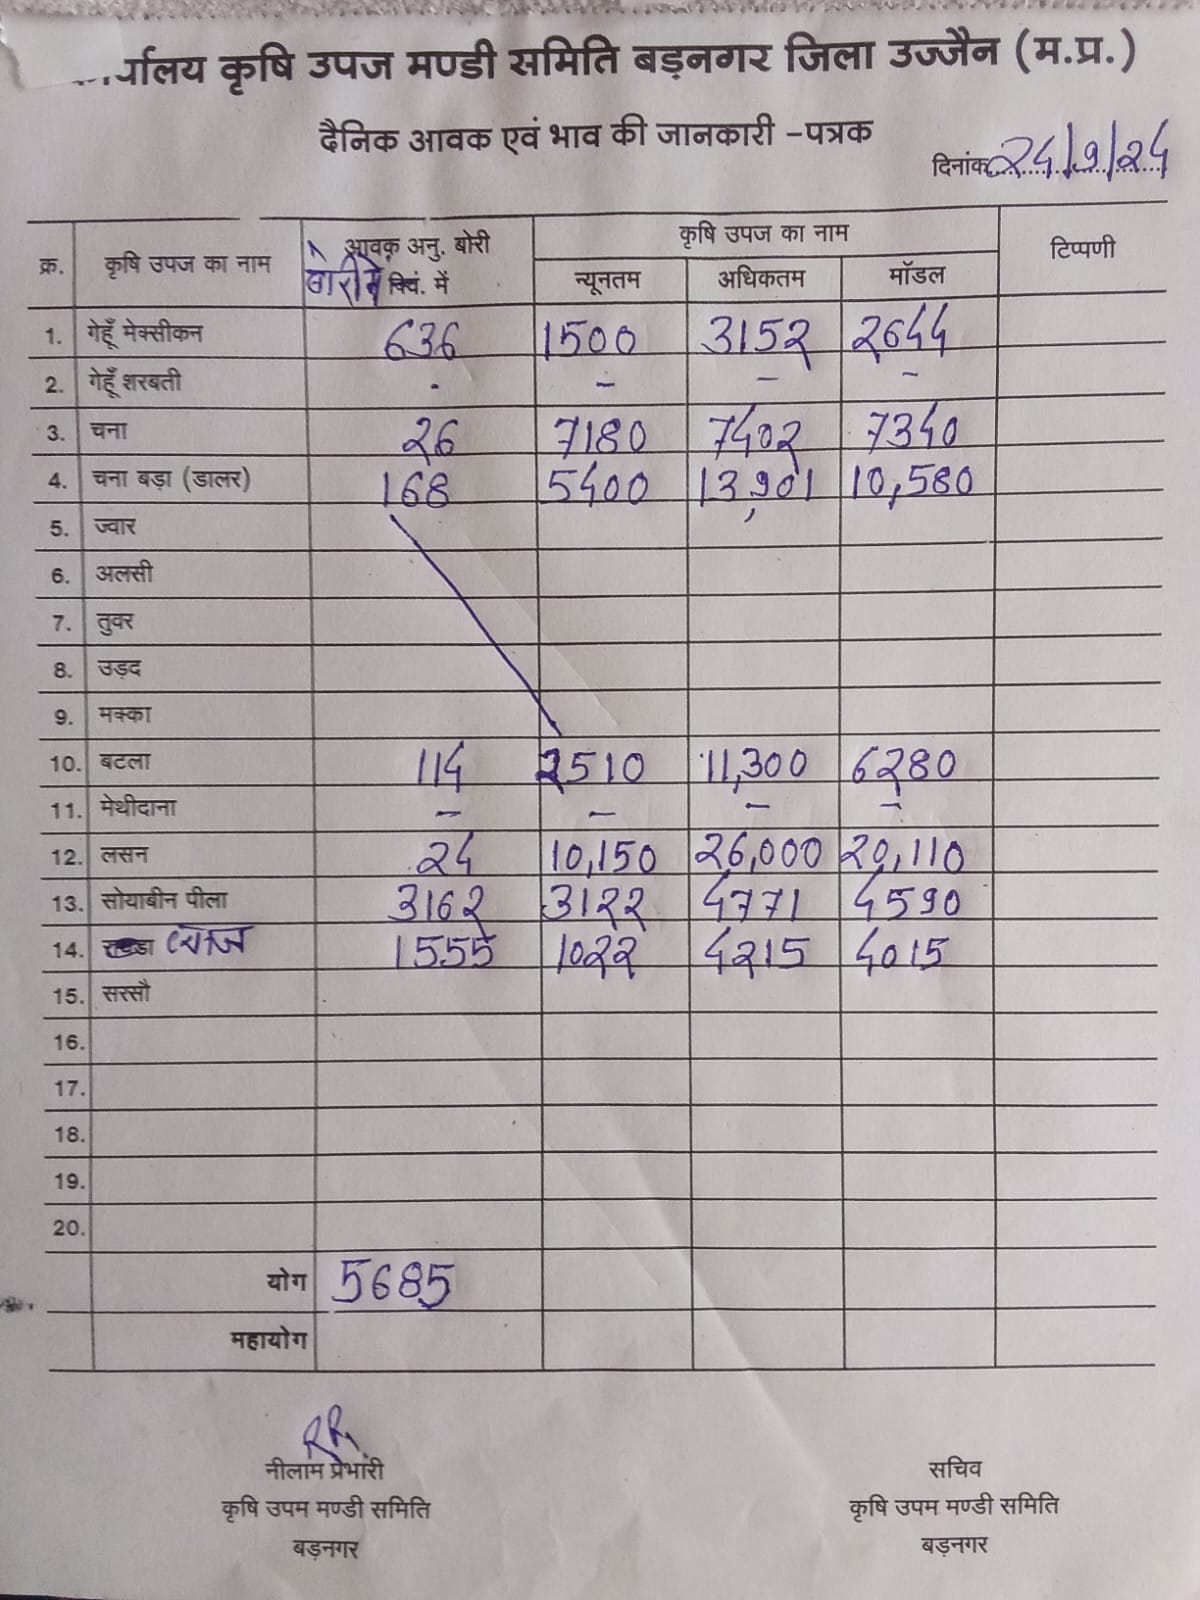 र्यालय कृषि उपज मण्डी समिति बड़नगर जिला उज्जैन (म.प्र.)
दैनिक आवक एवं भाव की जानकारी -पत्रक
दिनांक 24/9/24
क्र. कृषि उपज का नाम आवक अनु. बोरी क्विं. में बोरी में कृषि उपज का नाम टिप्पणी
न्यूनतम अधिकतम मॉडल
1. गेहूँ मेक्सीकन 636 1500 3152 2644
2. गेहूँ शरबती - - - -
3. चना 26 7180 7402 7340
4. चना बड़ा (डालर) 168 5400 13,901 10,580
5. ज्वार
6. अलसी
7. तुवर
8. उड़द
9. मक्का
10. बटला 114 2510 11,300 6280
11. मेथीदाना - - - -
12. लसन 24 10,150 26,000 20,110
13. सोयाबीन पीला 3162 3122 4771 4590
14. प्याज 1555 1022 4215 4015
15. सरसौ
16.
17.
18.
19.
20.
योग 5685
महायोग
नीलाम प्रभारी
कृषि उपम मण्डी समिति
बड़नगर
सचिव
कृषि उपम मण्डी समिति
बड़नगर